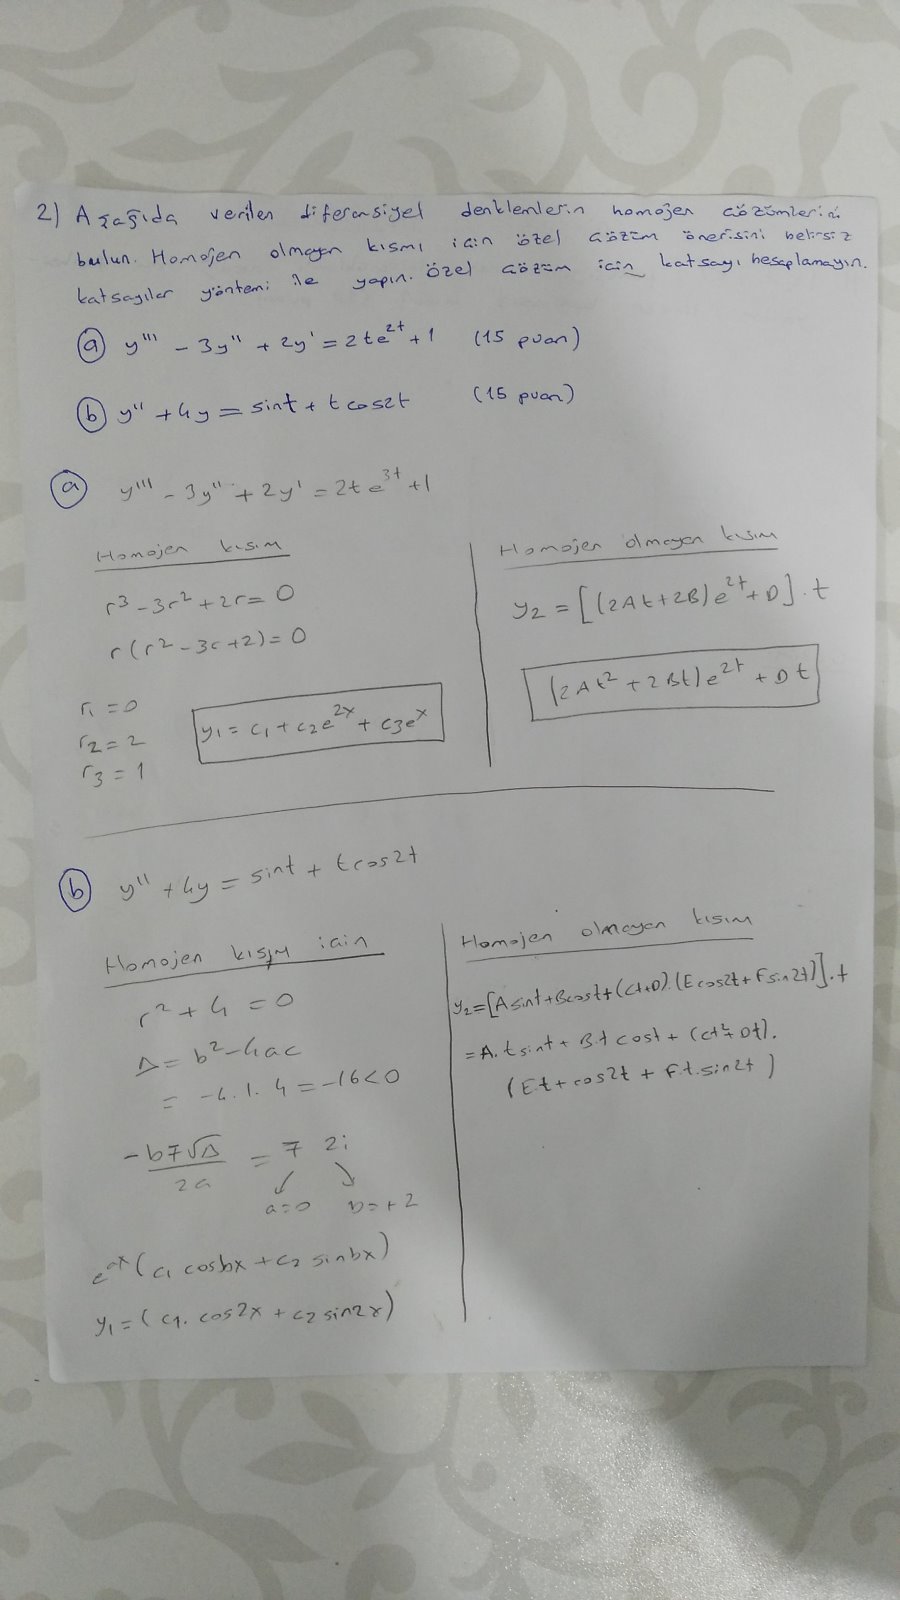 2) Aşağıda verilen diferensiyel denklemlerin homojen çözümlerini
bulun. Homojen olmayan kısmı için özel çözüm önerisini belirsiz
katsayılar yöntemi ile yapın. Özel çözüm için katsayı hesaplamayın.
(a) y''' - 3y'' + 2y' = 2te^2t + 1 (15 puan)
(b) y'' + 4y = sint + t cos2t (15 puan)
(a) y''' - 3y'' + 2y' = 2te^3t + 1
Homojen kısım
r^3 - 3r^2 + 2r = 0
r(r^2 - 3r + 2) = 0
r1 = 0
r2 = 2
r3 = 1
y1 = c1 + c2e^2x + c3e^x
Homojen olmayan kısım
y2 = [(2At + 2B)e^2t + D].t
(2At^2 + 2Bt)e^2t + Dt
(b) y'' + 4y = sint + tcos2t
Homojen kısım için
r^2 + 4 = 0
Δ = b^2 - 4ac
= -4.1.4 = -16 < 0
-b∓√Δ / 2a = ∓ 2i
a=0 b=+2
e^ax (c1 cosbx + c2 sinbx)
y1 = (c1. cos2x + c2 sin2x)
Homojen olmayan kısım
y2 = [Asint + Bcost + (Ct+D).(Ecos2t + Fsin2t)].t
= A.tsint + B.t cost + (Ct^2 + Dt).
(E.t + cos2t + F.t.sin2t)